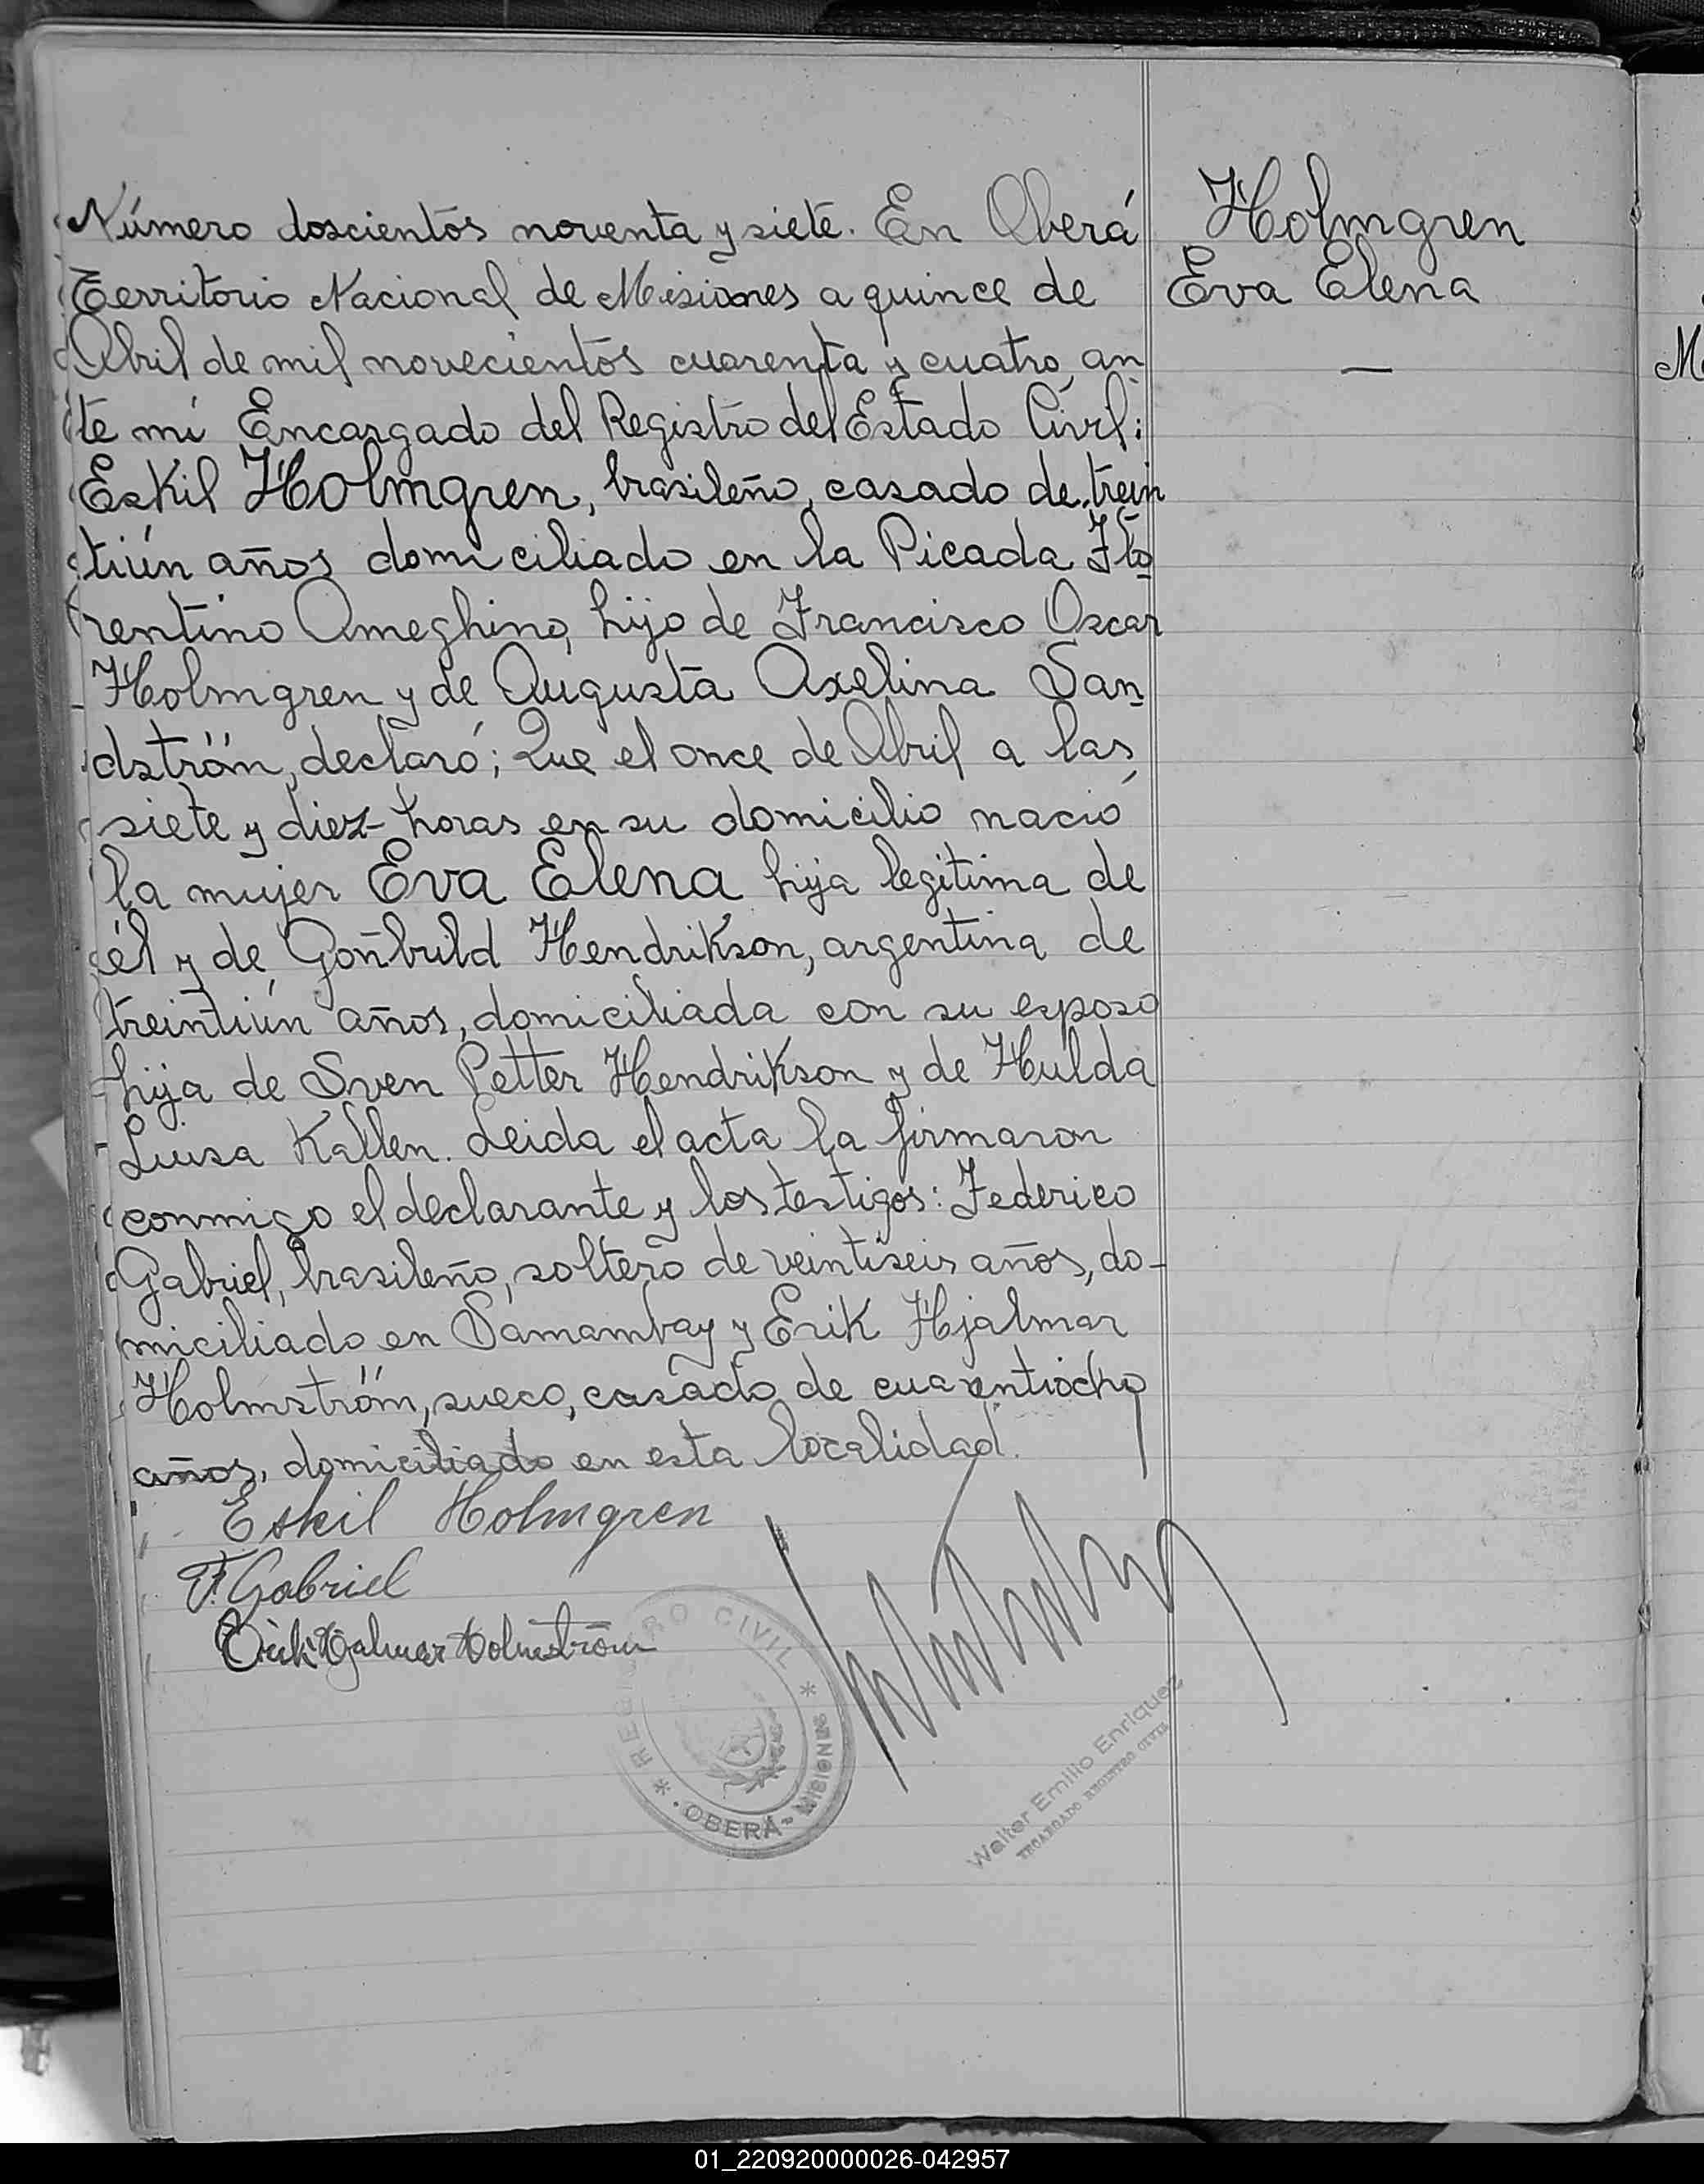 Número doscientos noventa y siete. En Oberá
Territorio Nacional de Misiones a quince de
Abril de mil novecientos cuarenta y cuatro, an
te mi Encargado del Registro del Estado Civil:
Eskil Holmgren, brasileño, casado de trein
tiún años domiciliado en la Picada Flo
rentino Ameghino, hijo de Francisco Oscar
Holmgren y de Augusta Axelina San
dström, declaró; Que el once de Abril a las
siete y diez horas en su domicilio nació
la mujer Eva Elena hija legitima de
él y de Hendrikson, argentina de
treintiún años, domiciliada con su esposo
hija de Sven Petter Hendrikson y de Hulda
Luisa Kallen. Leida el acta la firmaron
conmigo el declarante y los testigos: Federico
Gabriel, brasileño, soltero de veintiseis años, do-
miciliado en Samambay y Erik Hjalmar
Holmström, sueco, casado de cuarentiocho
años, domiciliado en esta localidad.
Eskil Holmgren
F. Gabriel
Erik Hjalmar Holmström
REGISTRO CIVIL
* OBERÁ - MISIONES *
Walter Emilio Enriquez
ENCARGADO REGISTRO CIVIL
Holmgren
Eva Elena
—
M
01_220920000026-042957